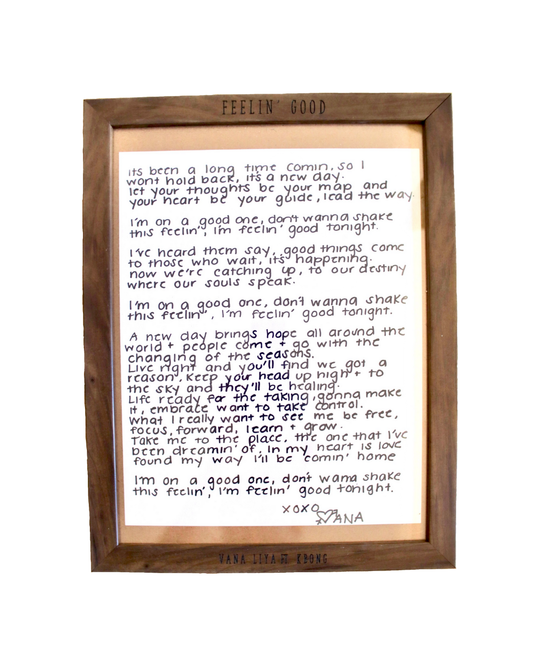 FEELIN' GOOD
its been a long time comin, so I
wont hold back, it's a new day.
let your thoughts be your map and
your heart be your guide, lead the way.
I'm on a good one, don't wanna shake
this feelin', i'm feelin' good tonight.
I've heard them say, good things come
to those who wait, its happening.
now we're catching up, to our destiny
where our souls speak.
I'm on a good one, don't wanna shake
this feelin', I'm feelin' good tonight.
A new day brings hope all around the
world + people come + go with the
changing of the seasons.
Live right and you'll find we got a
reason, keep your head up high + to
the sky and they'll be healing.
Life ready for the taking, gonna make
it, embrace want to take control.
What I really want to see me be free,
focus, forward, learn + grow.
Take me to the place, the one that I've
been dreamin' of, in my heart is love
found my way I'll be comin' home
I'm on a good one, don't wana shake
this feelin', I'm feelin' good tonight.
xoxo
VANA
VANA LIYA KBONG